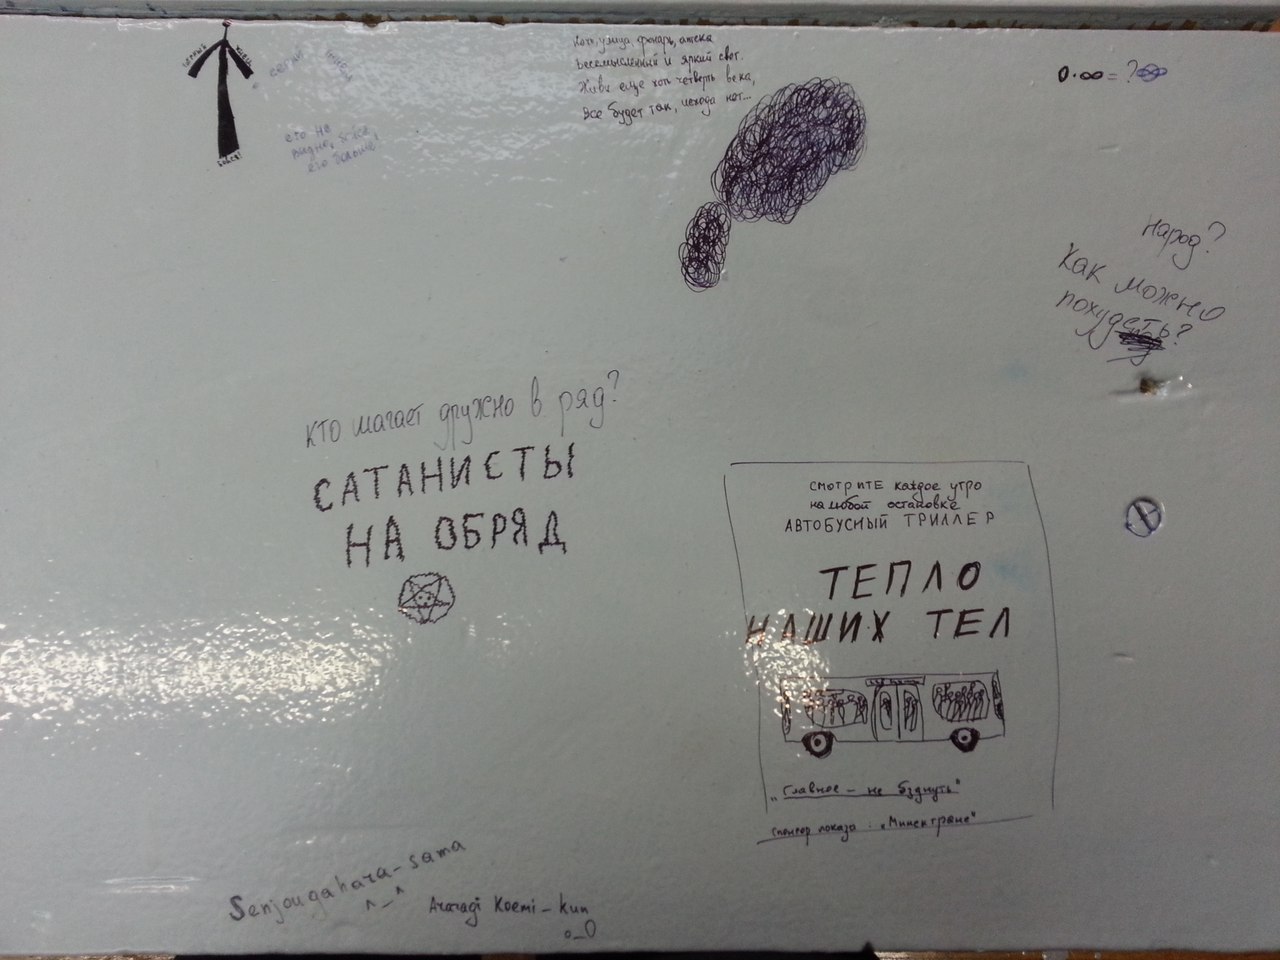 ЧЕРНЫЙ
БОЙСЯ!
его не
видно, но все
Ночь, улица, фонарь, аптека
Бессмысленный и яркий свет.
Живи еще хоть четверть века,
Все будет так, исхода нет...
0·∞=?
народ?
Как можно
похудеть?
кто шагает дружно в ряд?
САТАНИСТЫ
НА ОБРЯД
СМОТРИТЕ каждое утро
на любой остановке
АВТОБУСНЫЙ ТРИЛЛЕР
ТЕПЛО
НАШИХ ТЕЛ
"Главное - не бзднуть"
спонсор показа: "Минсктранс"
Senjougahara-sama
^_^
Araragi Koemi-kun
o_O